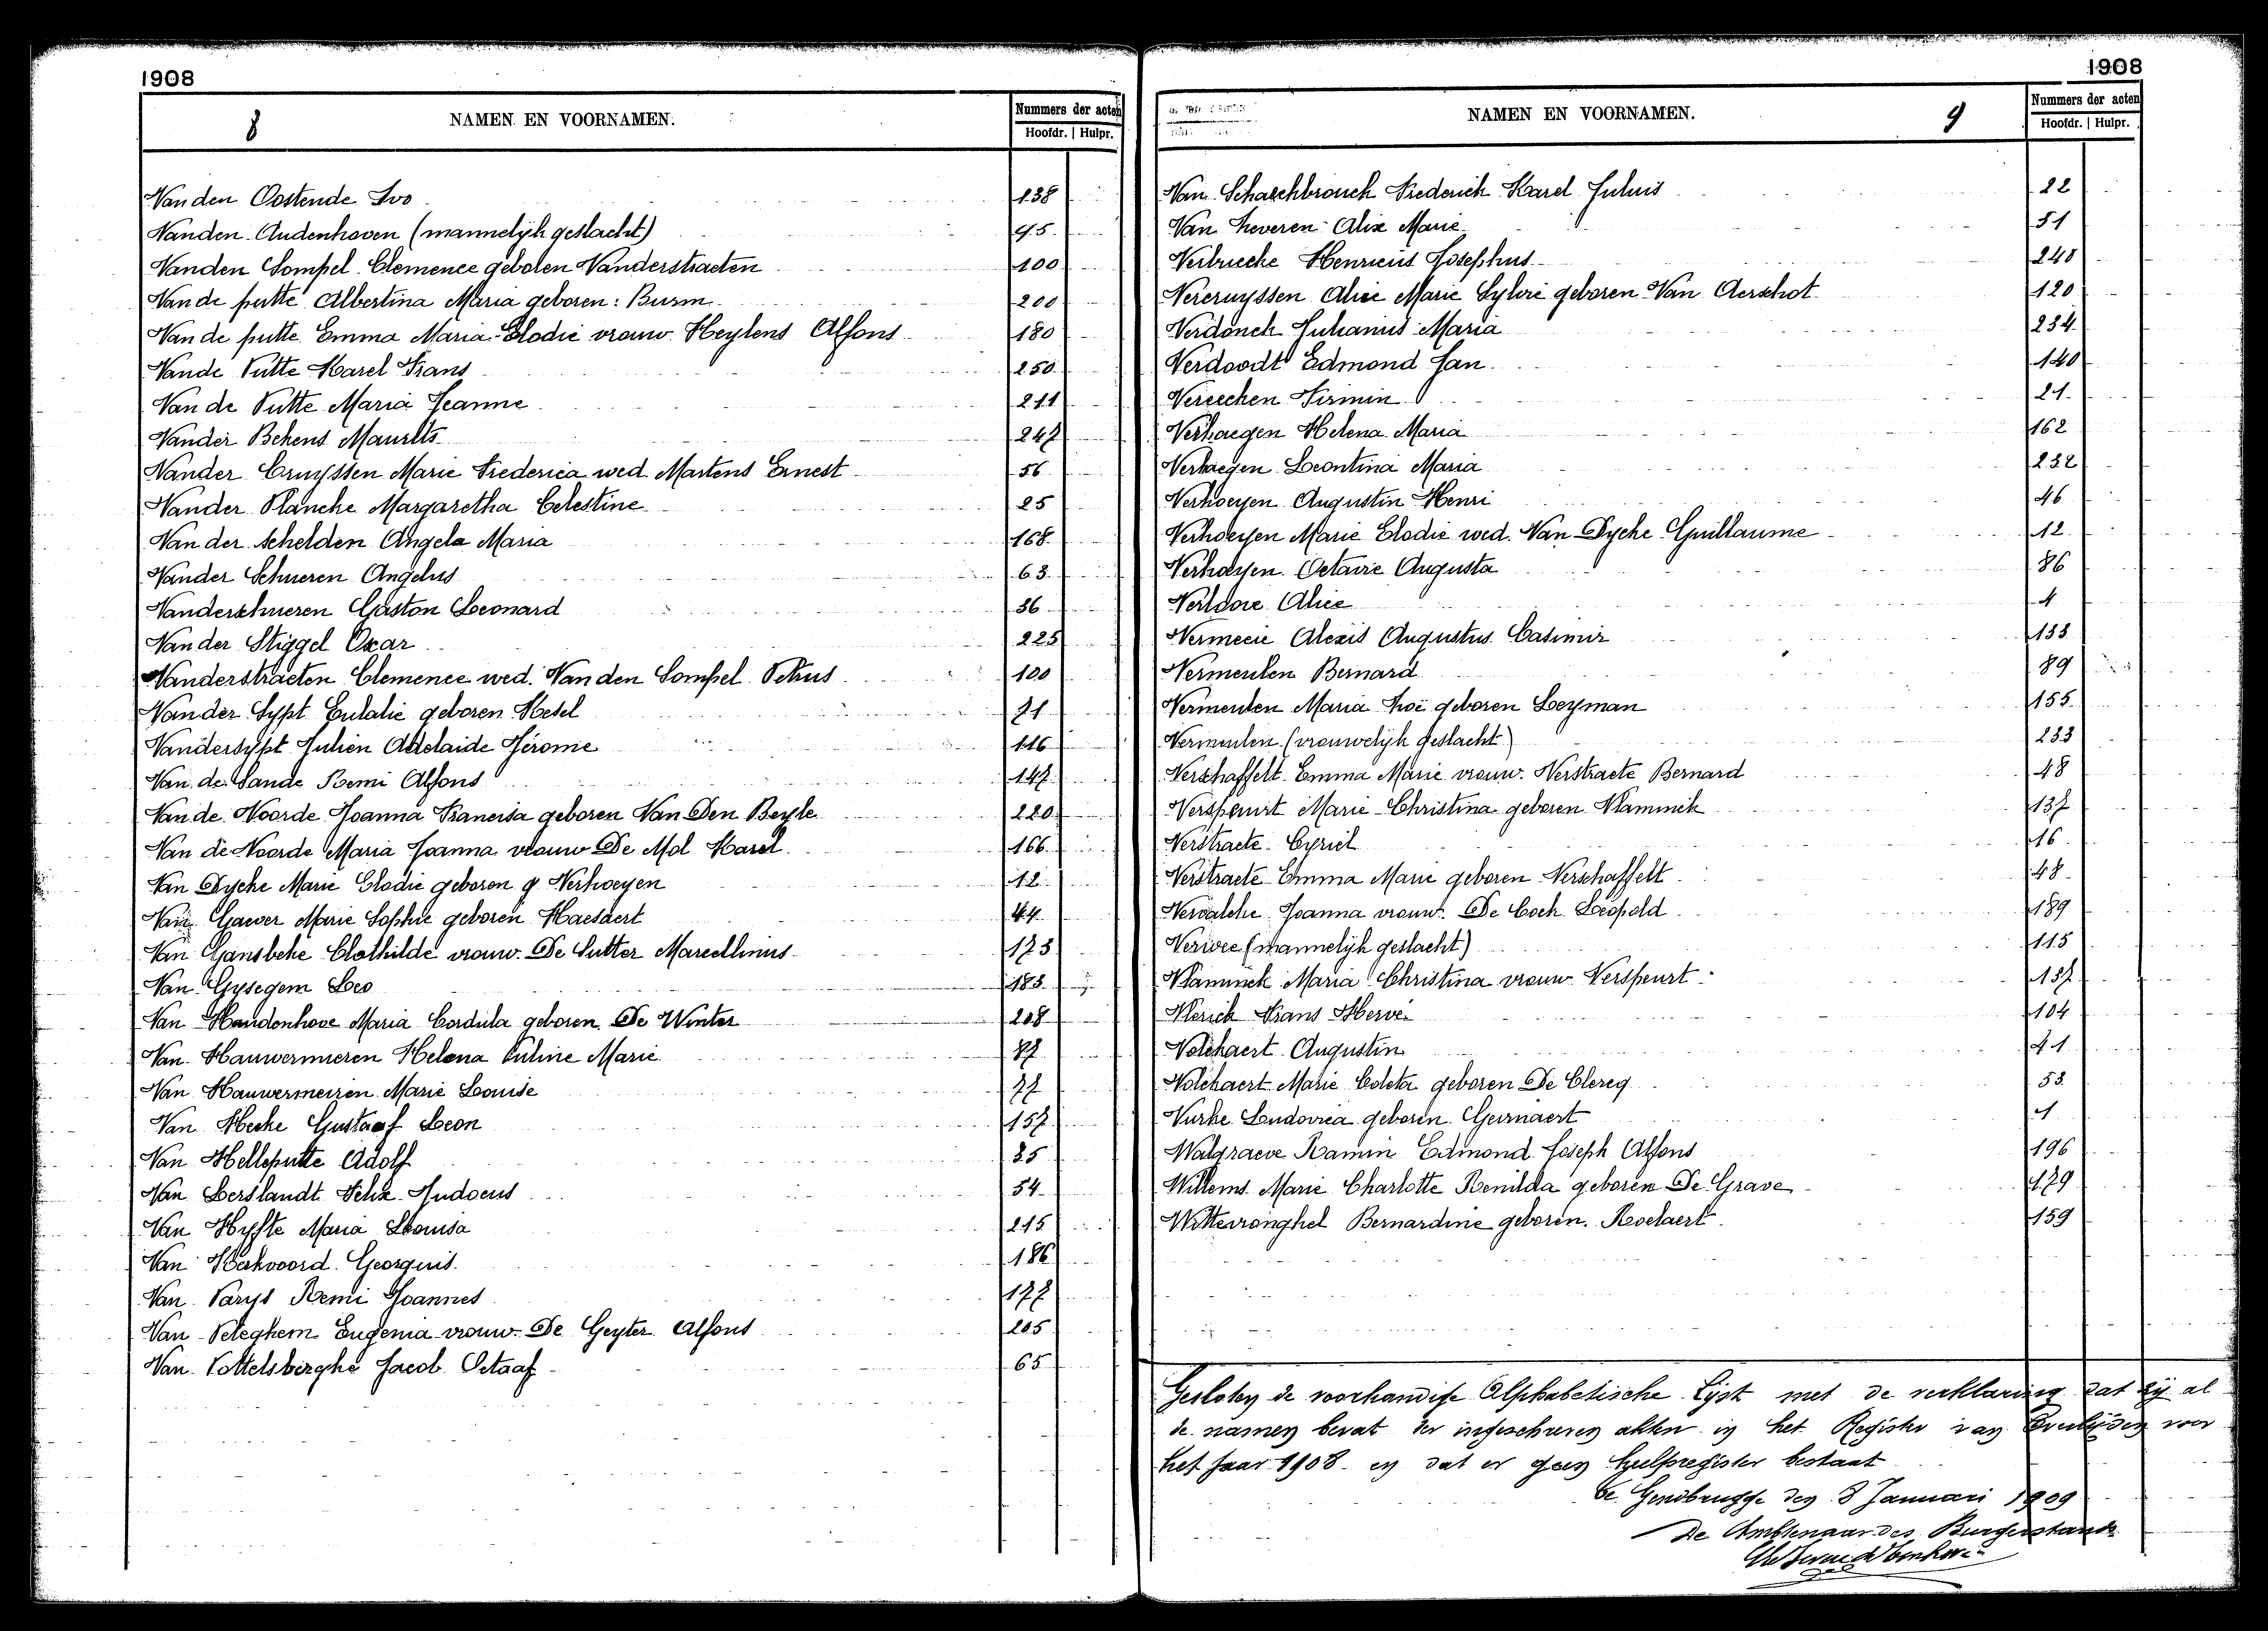 1908
8 NAMEN EN VOORNAMEN. Nummers der acten
Hoofdr. | Hulpr.
Van den Oostende Ivo 138
Vanden Audenhoven (mannelijk geslacht) 95
Vanden Sompel Clemence geboren Vanderstraeten 100
Van de putte Albertina Maria geboren: Burm 200
Van de putte Emma Maria Elodie vrouw Heylens Alfons 180
Vande Putte Karel Frans 250
Van de Putte Maria Jeanne 211
Vander Bekens Maurits 247
Vander Cruyssen Marie Frederica wed. Martens Ernest 56
Vander Plancke Margaretha Celestine 25
Van der Schelden Angela Maria 168
Vander Schueren Angelus 63
Vanderschueren Gaston Leonard 36
Van der Stiggel Oscar 225
Vanderstraeten Clemence wed. Van den Sompel Petrus 100
Van der Sypt Eulalie geboren Hesel 71
Vandersypt Julien Adelaide Jérome 116
Van de Sande Remi Alfons 147
Van de Voorde Joanna Francisa geboren Van Den Beyle 220
Van de Voorde Maria Joanna vrouw De Mol Karel 166
Van Dycke Marie Elodie geboren Verhoeyen 12
Van Gaever Marie Sophie geboren Haesaert 44
Van Gansbeke Clothilde vrouw De Sutter Marcellinus 173
Van Gysegem Leo 183
Van Haudenhove Maria Cordula geboren De Winter 208
Van Hauwermeiren Helena Euline Marie 87
Van Hauwermeiren Marie Louise 77
Van Hecke Gustaaf Leon 157
Van Helleputte Adolf 35
Van Lerslandt Felix Audoenus 54
Van Hyfte Maria Louisa 215
Van Kerkvoord Georgius 186
Van Parys Remi Joannes 177
Van Peteghem Eugenia vrouw De Geyter Alfons 205
Van Pottelsberghe Jacob Octaaf 65
1908
NAMEN EN VOORNAMEN. 9 Nummers der acten
Hoofdr. | Hulpr.
Van Schaeckbrouck Frederick Karel Julius 22
Van Severen Alix Marie 51
Verbrecke Henricus Josephus 240
Vercruyssen Alice Marie Sylvie geboren Van Aerschot 120
Verdonck Julianus Maria 234
Verdoodt Edmond Jan 140
Vereecken Firmin 21
Verhaegen Helena Maria 162
Verhaegen Leontina Maria 232
Verhoeyen Augustin Henri 46
Verhoeyen Marie Elodie wed. Van Dycke Guillaume 12
Verhoeyen Octavie Augusta 86
Alice 4
Alexis Augustus Casimir 133
Vermeulen Bernard 89
Vermeulen Maria Zoë geboren Leyman 155
Vermeulen (vrouwelijk geslacht) 233
Verschaffelt Emma Marie vrouw Verstraete Bernard 48
Verspeurt Marie Christina geboren Vlaminck 137
Verstraete Cyriel 16
Verstraete Emma Marie geboren Verschaffelt 48
Vervalcke Joanna vrouw De Cock Leopold 189
(mannelijk geslacht) 115
Vlaminck Maria Christina vrouw Verspeurt 137
Vlerick Frans Hervé 104
Volckaert Augustin 41
Volckaert Marie Coleta geboren De Clercq 53
Vurke Ludovica geboren Geirnaert 1
Walgraeve Ramin Edmond Joseph Alfons 196
Willems Marie Charlotte Renilda geboren De Grave 179
Wittevronghel Bernardine geboren Roelaert 159
Gesloten de voorhandige Alphabetische Lijst met de verklaring dat zij al
de namen bevat der ingeschreven akten in het Register van Overlijden voor
het jaar 1908 en dat er geen hulpregister bestaat
te Gendbrugge den 8 Januari 1909
De Ambtenaar des Burgerstands